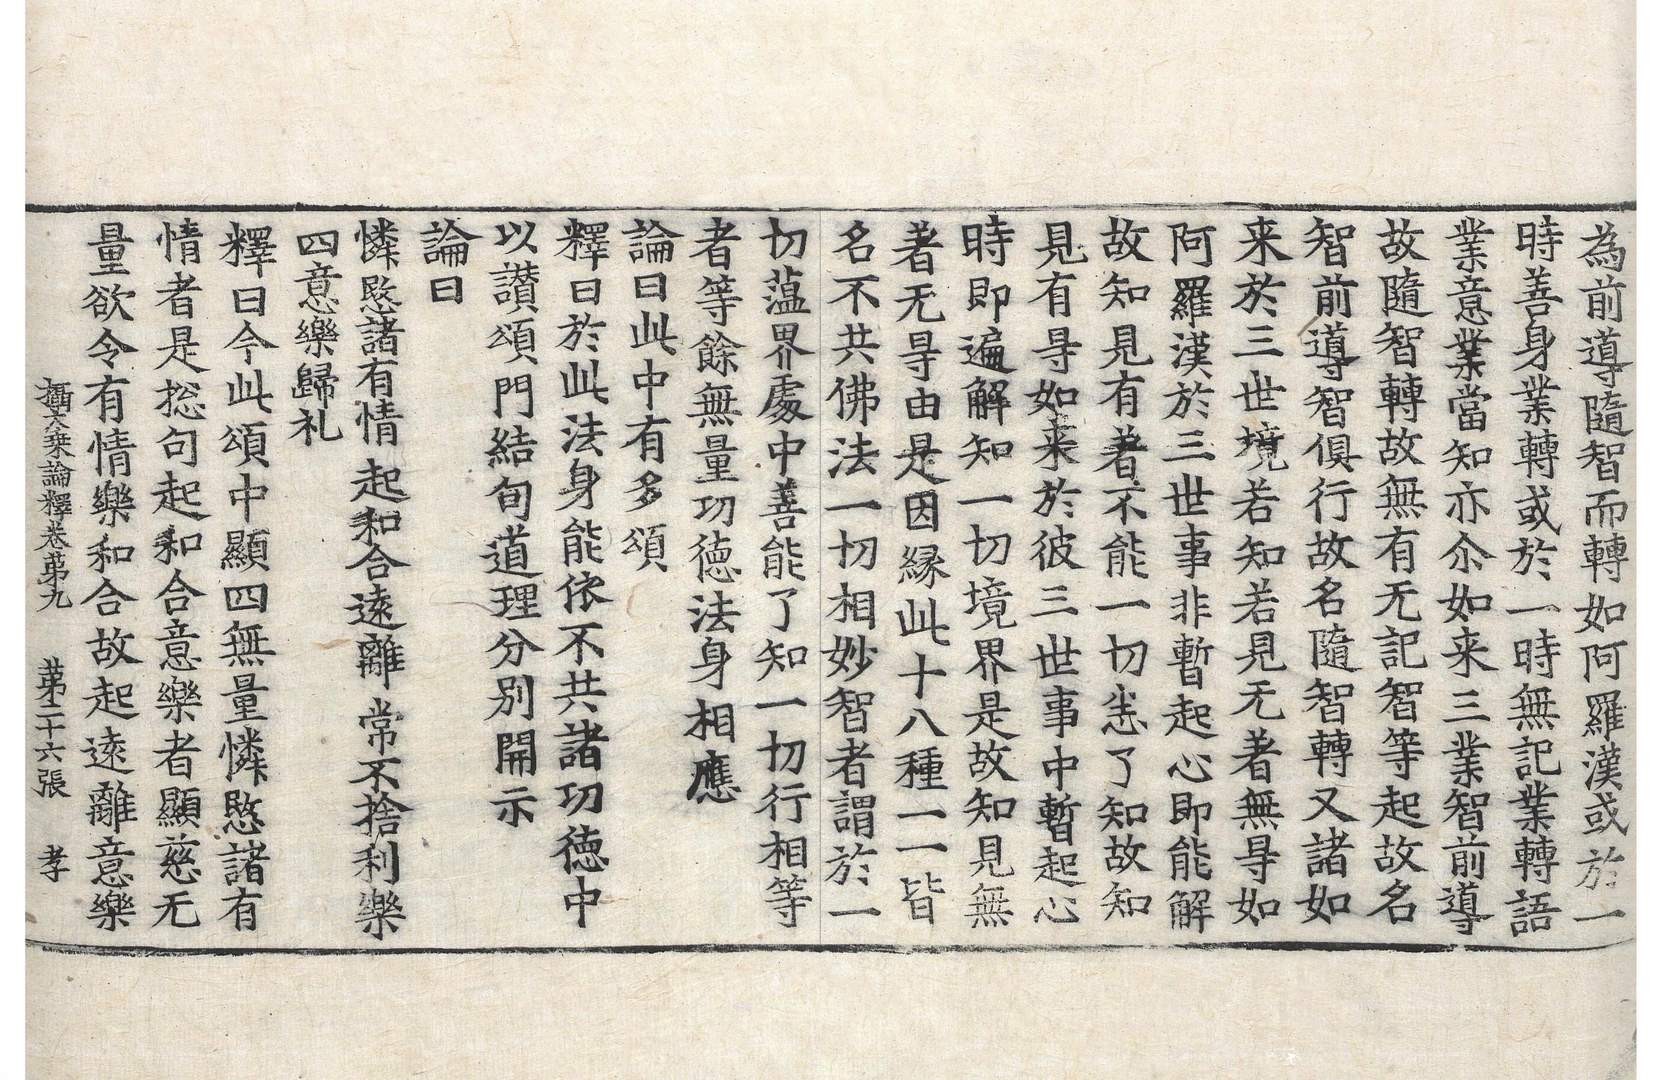 為前導隨智而轉如阿羅漢或於一
時善身業轉或於一時無記業轉語
業意業當知亦尒如来三業智前導
故隨智轉故無有无記智等起故名
智前導智俱行故名隨智轉又諸如
来於三世境若知若見无著無㝵如
阿羅漢於三世事非暫起心即能解
故知見有著不能一切悉了知故知
見有㝵如来於彼三世事中暫起心
時即遍解知一切境界是故知見無
著无㝵由是因縁此十八種一一皆
名不共佛法一切相妙智者謂於一
切蕰界處中善能了知一切行相等
者等餘無量功德法身相應
論曰此中有多頌
釋曰於此法身能依不共諸功德中
以讃頌門結旬道理分別開示
論曰
憐愍諸有情起和合遠離常不捨利樂
四意樂歸礼
釋曰今此頌中顯四無量憐愍諸有
情者是捴句起和合意樂者顯慈无
量欲令有情樂和合故起遠離意樂
攝大乘論釋卷苐九　苐二十六張　孝